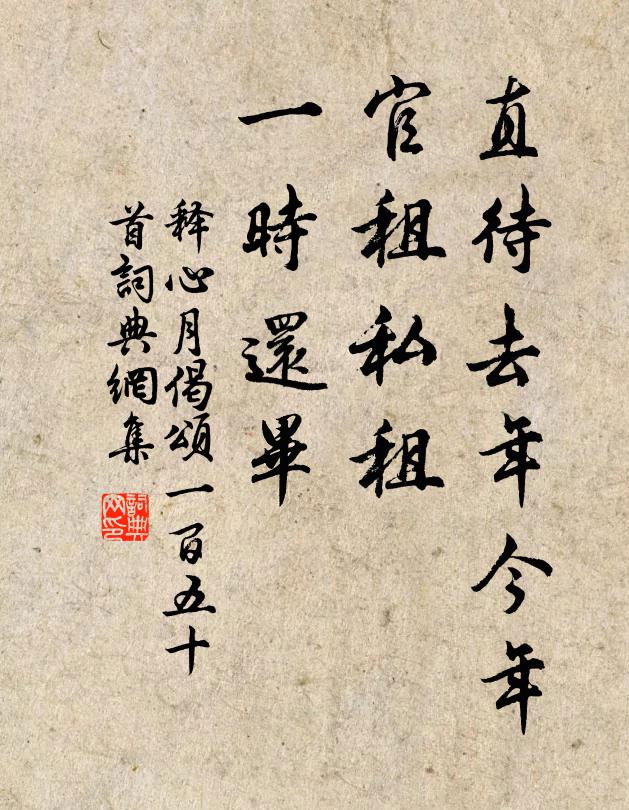 直待去年今年
官租私租
一時還畢
释心月偈頌一百五十
首詞典網集
詞典网印